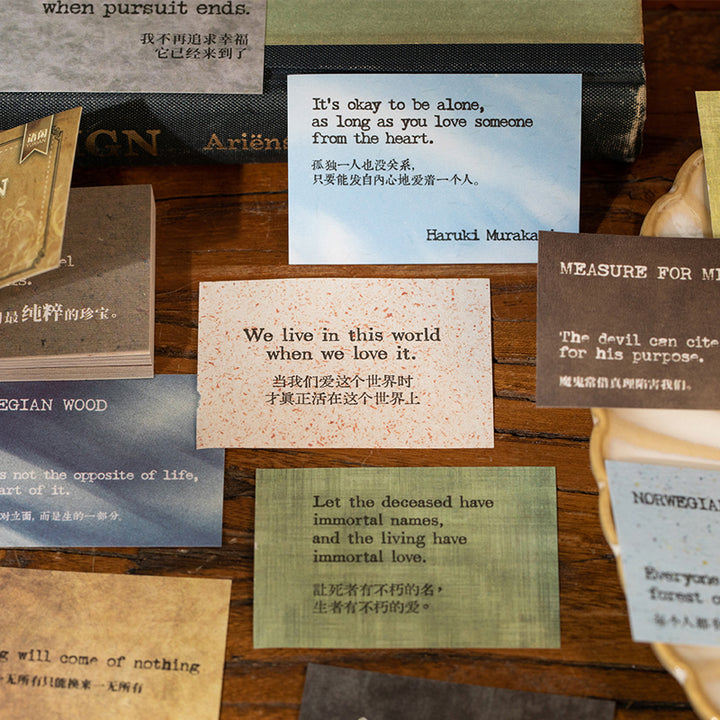 when pursuit ends.
我不再追求幸福
它已经来到了
GN
Ariëns
It's okay to be alone,
as long as you love someone
from the heart.
孤独一人也没关系，
只要能发自内心地爱着一个人。
Haruki Muraka
最纯粹的珍宝。
MEASURE FOR ME
The devil can cite
for his purpose.
魔鬼常借真理陷害我们。
We live in this world
when we love it.
当我们爱这个世界时
才真正活在这个世界上
EGIAN WOOD
s not the opposite of life,
art of it.
对立面，而是生的一部分。
Let the deceased have
immortal names,
and the living have
immortal love.
让死者有不朽的名，
生者有不朽的爱。
NORWEGIAN
Everyone
forest o
每个人都有
g will come of nothing
一无所有只能换来一无所有